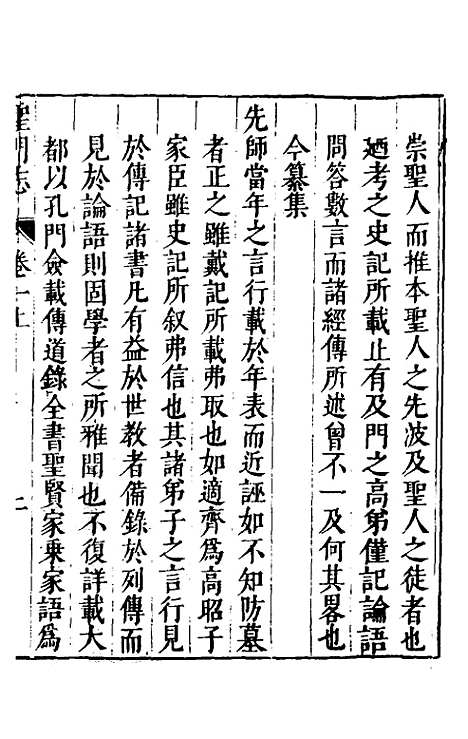 崇聖人而推本聖人之先波及聖人之徒者也
廼考之史記所載止有及門之高弟僅記論語
問答數言而諸經傳所述曾不一及何其畧也
今纂集
先師當年之言行載於年表而近誣如不知防墓
者正之雖戴記所載弗取也如適齊爲高昭子
家臣雖史記所叙弗信也其諸弟子之言行見
於傳記諸書凡有益於世教者備錄於列傳而
見於論語則固學者之所雅聞也不復詳載大
都以孔門僉載傳道錄全書聖賢家乘家語爲
聖門志 卷一上